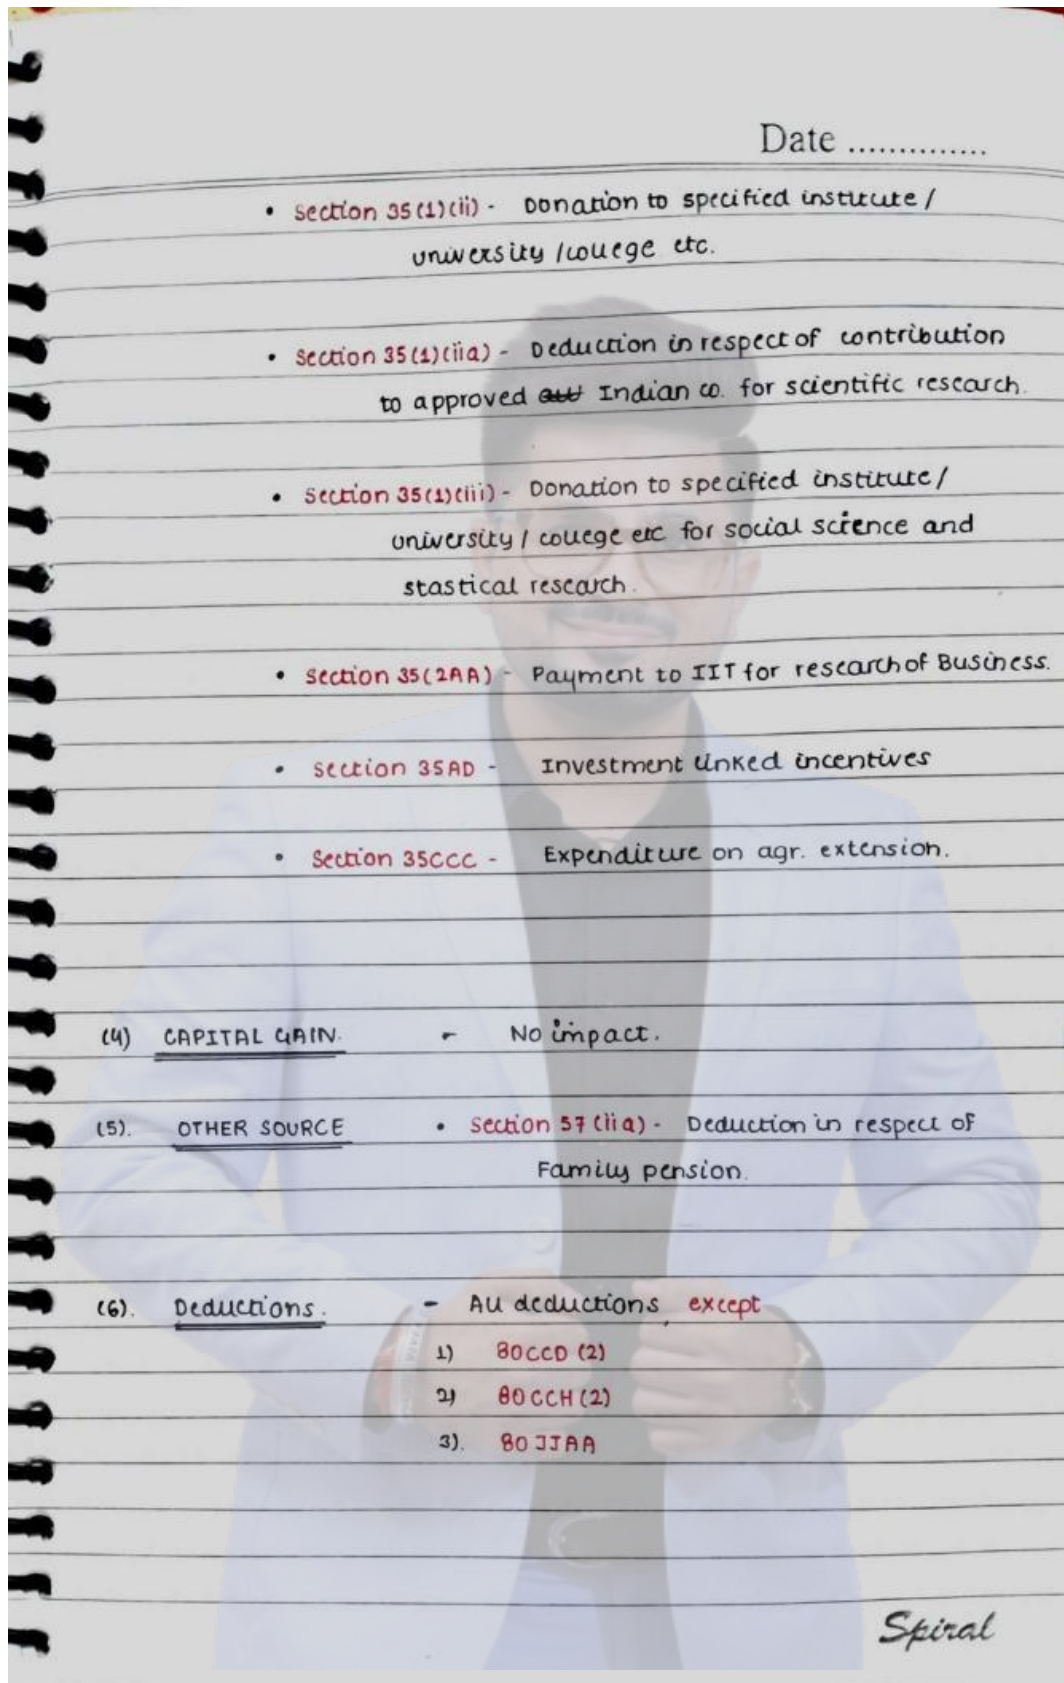 Date ..............
• Section 35(1)(ii) - Donation to specified institute /
university / college etc.
• Section 35(1)(iia) - Deduction in respect of contribution
to approved Indian co. for scientific research.
• Section 35(1)(iii) - Donation to specified institute /
university / college etc for social science and
stastical research.
• Section 35(2AA) - Payment to IIT for research of Business.
• Section 35AD - Investment linked incentives
• Section 35CCC - Expenditure on agr. extension.
(4) CAPITAL GAIN. - No impact.
(5). OTHER SOURCE • Section 57(iia) - Deduction in respect of
Family pension.
(6). Deductions. - All deductions, except
1) 80CCD (2)
2) 80CCH (2)
3). 80JJAA
Spiral